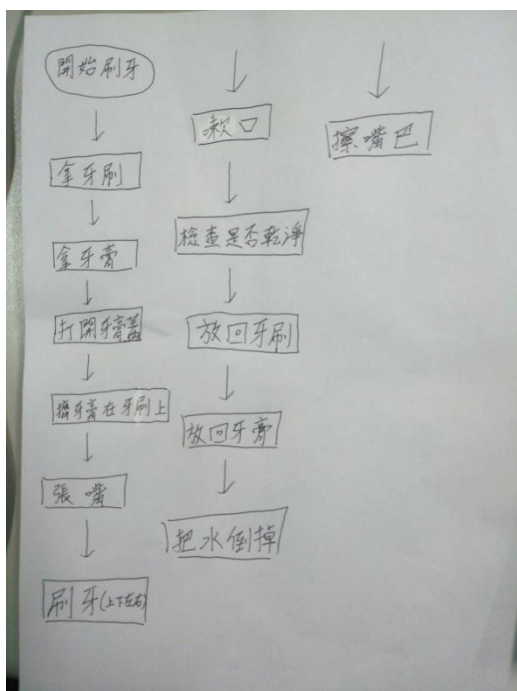 開始刷牙
拿牙刷
拿牙膏
打開牙膏蓋
擠牙膏在牙刷上
張嘴
刷牙(上下左右)
漱口
檢查是否乾淨
放回牙刷
放回牙膏
把水倒掉
擦嘴巴